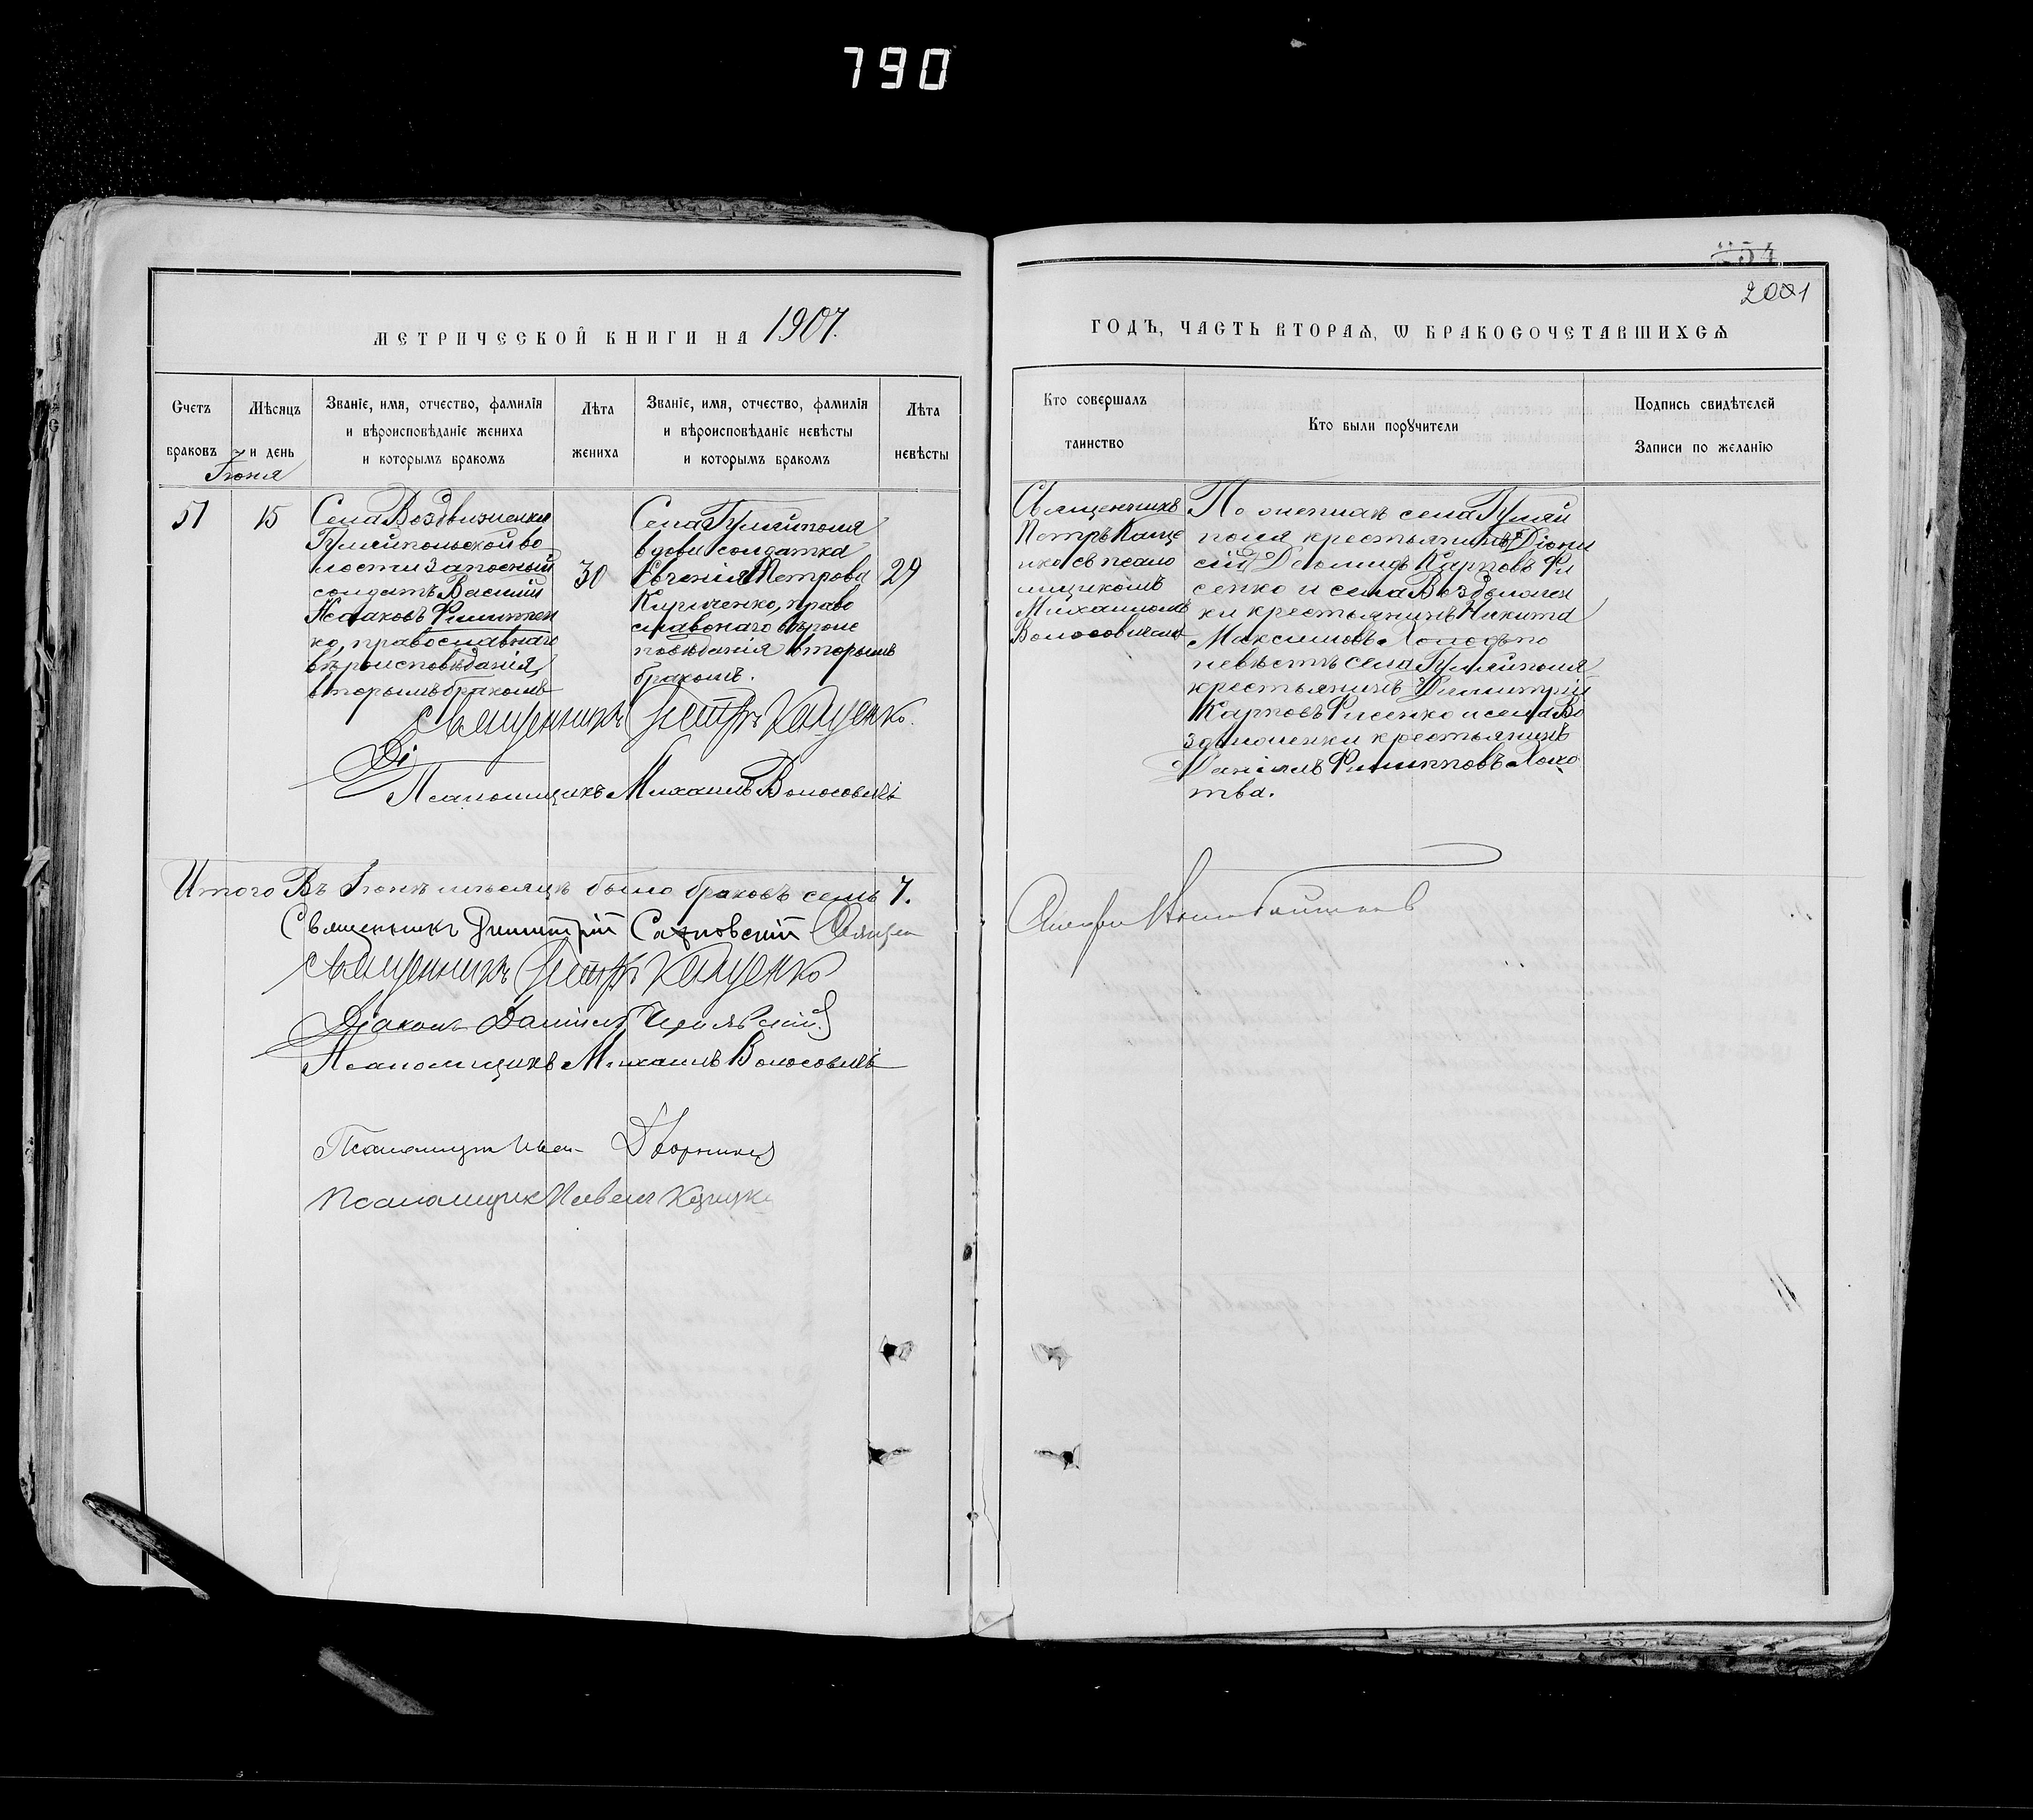 790
254
2001
МЕТРИЧЕСКОЙ КНИГИ НА 1907.
ГОДЪ, ЧАСТЬ ВТОРАЯ, Ѡ БРАКОСОЧЕТАВШИХСЯ
Счетъ браковъ
Мѣсяцъ и день
Званіе, имя, отчество, фамилія
и вѣроисповѣданіе жениха
и которымъ бракомъ
Лѣта жениха
Званіе, имя, отчество, фамилія
и вѣроисповѣданіе невѣсты
и которымъ бракомъ
Лѣта невѣсты
Кто совершалъ
таинство
Кто были поручители
Подпись свидѣтелей
Записи по желанію
Іюня
51
15
Села Воздвиженки
Гуляйпольской во
лости запасный
солдатъ Василій
Исаковъ Филиппен
ко, православнаго
вѣроисповѣданія,
вторымъ бракомъ
30
Села Гуляйполя
вдова солдатка
Евгенія Петрова
Кириченко, право
славнаго вѣроис
повѣданія вторымъ
бракомъ.
29
Священникъ
Петръ Каще
нко съ псало
мщикомъ
Михаиломъ
Волосовичемъ
По женихѣ села Гуляй
поля крестьянинъ Діони
сій Карповъ Фи
сенко и села Воздвижен
ки крестьянинъ Никита
Максимовъ
невѣстѣ села Гуляйполя
крестьянинъ Димитрій
Карповъ Фисенко и села Во
здвиженки крестьянинъ
Даніилъ Филипповъ
тва.
Священникъ Петръ Кащенко.
Ді
Псаломщикъ Михаилъ Волосовичъ
Итого Въ Іюнѣ мѣсяцѣ было браковъ семь 7.
Священникъ Димитрій
Священникъ Петръ Кащенко
Діаконъ Даніилъ
Псаломщикъ Михаилъ Волосовичъ
Псаломщик Иван
Псаломщик Павел